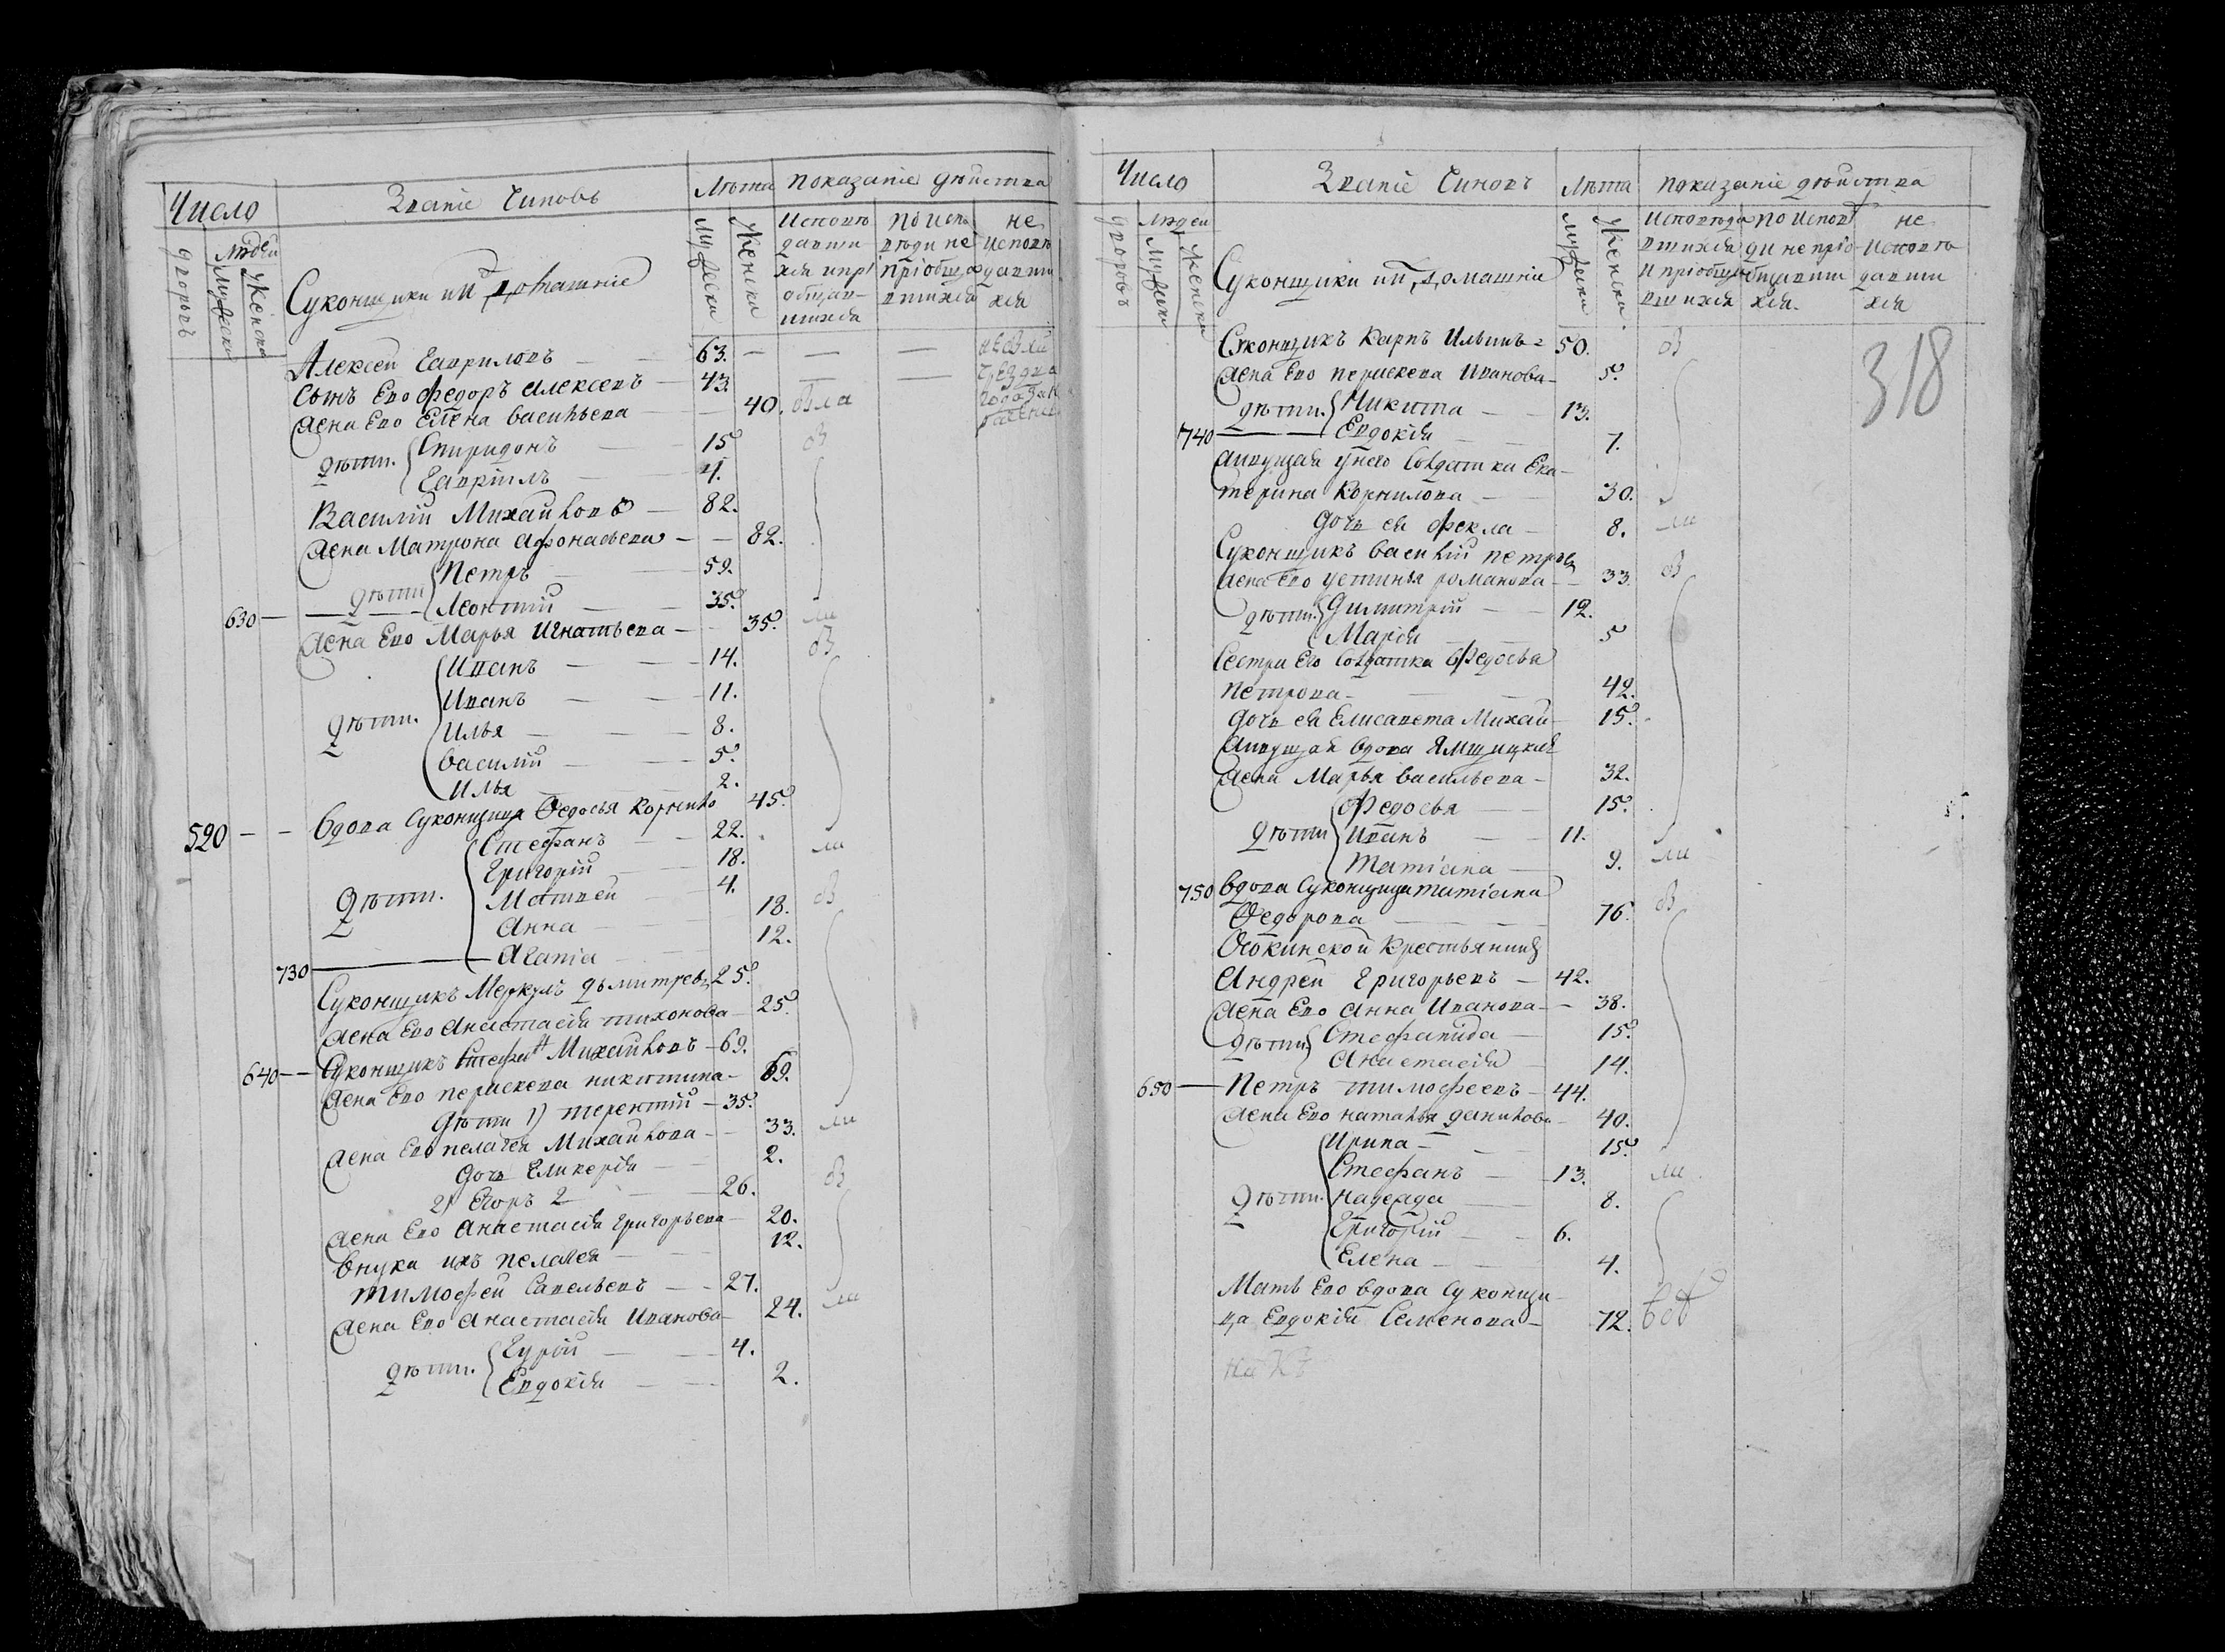 Число
Званіе Чиновъ
Лѣта
показаніе дѣйства
дворовъ
Людей
Мужеска
Женска
Суконщики и ихъ домашніе
Мужеска
Женска
Исповѣ
давши
хся и прі
общав
шихся
по испо
вѣди не
пріобща
вшихся
не
исповѣ
давши
хся
Алексей Гавриловъ 63.
Сынъ Ево Федоръ Алексеевъ 43.
Жена Ево Елена Васильева 40.
дѣти. Спиридонъ 15
Гавріилъ 4.
Василій Михайловъ 82.
Жена Матрона Афонасьева 82.
дѣти Петръ 59.
630 Леонтій 35.
Жена Ево Марья Игнатьева 35.
дѣти. Иванъ 14.
Иванъ 11.
Илья 8.
Василій 5.
Илья 2.
520 Вдова Суконщица Ѳедосья Корнило 45.
дѣти. Стефанъ 22.
Григорій 18.
Матвей 4.
Анна 18.
730 Агапіа 12.
Суконщикъ Меркулъ Дьмитревъ 25.
Жена Ево Анастасія тихонова 25.
640 Суконщикъ Стефанъ Михайловъ 69.
Жена Ево перископа никитина 69.
дѣти 1) терентій 35.
Жена Ево пелагея Михайлова 33.
Дочь Гликерія 2.
2) Егоръ 2 26.
Жена Ево Анастасія Григорьева 20.
Внука ихъ пелагея 12.
тимофей Савельевъ 27.
Жена Ево Анастасія Иванова 24.
дѣти. Гурій 4.
Евдокія 2.
Число
Званіе Чиновъ
Лѣта
показаніе дѣйства
дворовъ
Людей
Мужеска
Женска
Суконщики и ихъ домашніе
Мужеска
Женска
Исповѣда
вшихся
и пріобща
вшихся
по испов
ди не пріо
бщавши
хся.
не
исповѣ
давши
хся
318
Суконщикъ Карпъ Ильинъ 50.
Жена Ево перискева Иванова 5.
дѣти. Никита 13.
740 Евдокія 7.
Живущая у него Солдатка Ека
терина Корнилова 30.
Дочь ея Фекла 8.
Суконщикъ Василій петровъ
Жена Ево устинья романова 33.
дѣти. Димитрій 12.
Марія 5
Сестра Его Солдатка Федосья
петрова 42.
Дочь ея Елисавета Михай 15.
Живущая вдова Ямщицкая
Жена Марья Васильева 32.
дѣти Федосья 15.
Иванъ 11.
Татіана 9.
750 Вдова Суконщица татіана
Ѳедорова 76.
Осокинской Крестьянинъ
Андрей Григорьевъ 42.
Жена Ево Анна Иванова 38.
дѣти Стефанида 15.
Анастасія 14.
650 Петръ тимофеевъ 44.
Жена Ево наталья данилова 40.
дѣти. Ирина 15.
Стефанъ 13.
надежда 8.
Григорій 6.
Елена 4.
Мать Ево вдова Суконщи
ца Евдокія Семенова 72.